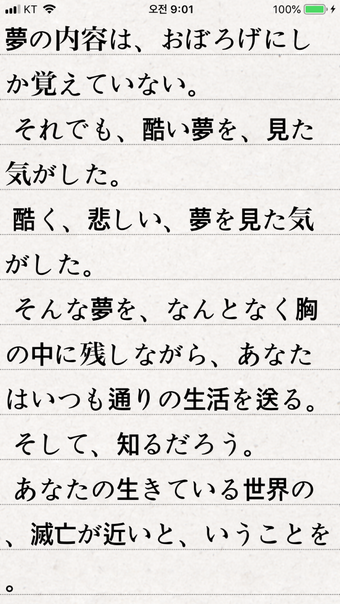 KT 오전 9:01 100%
夢の内容は、おぼろげにし
か覚えていない。
それでも、酷い夢を、見た
気がした。
酷く、悲しい、夢を見た気
がした。
そんな夢を、なんとなく胸
の中に残しながら、あなた
はいつも通りの生活を送る。
そして、知るだろう。
あなたの生きている世界の
、滅亡が近いと、いうことを
。